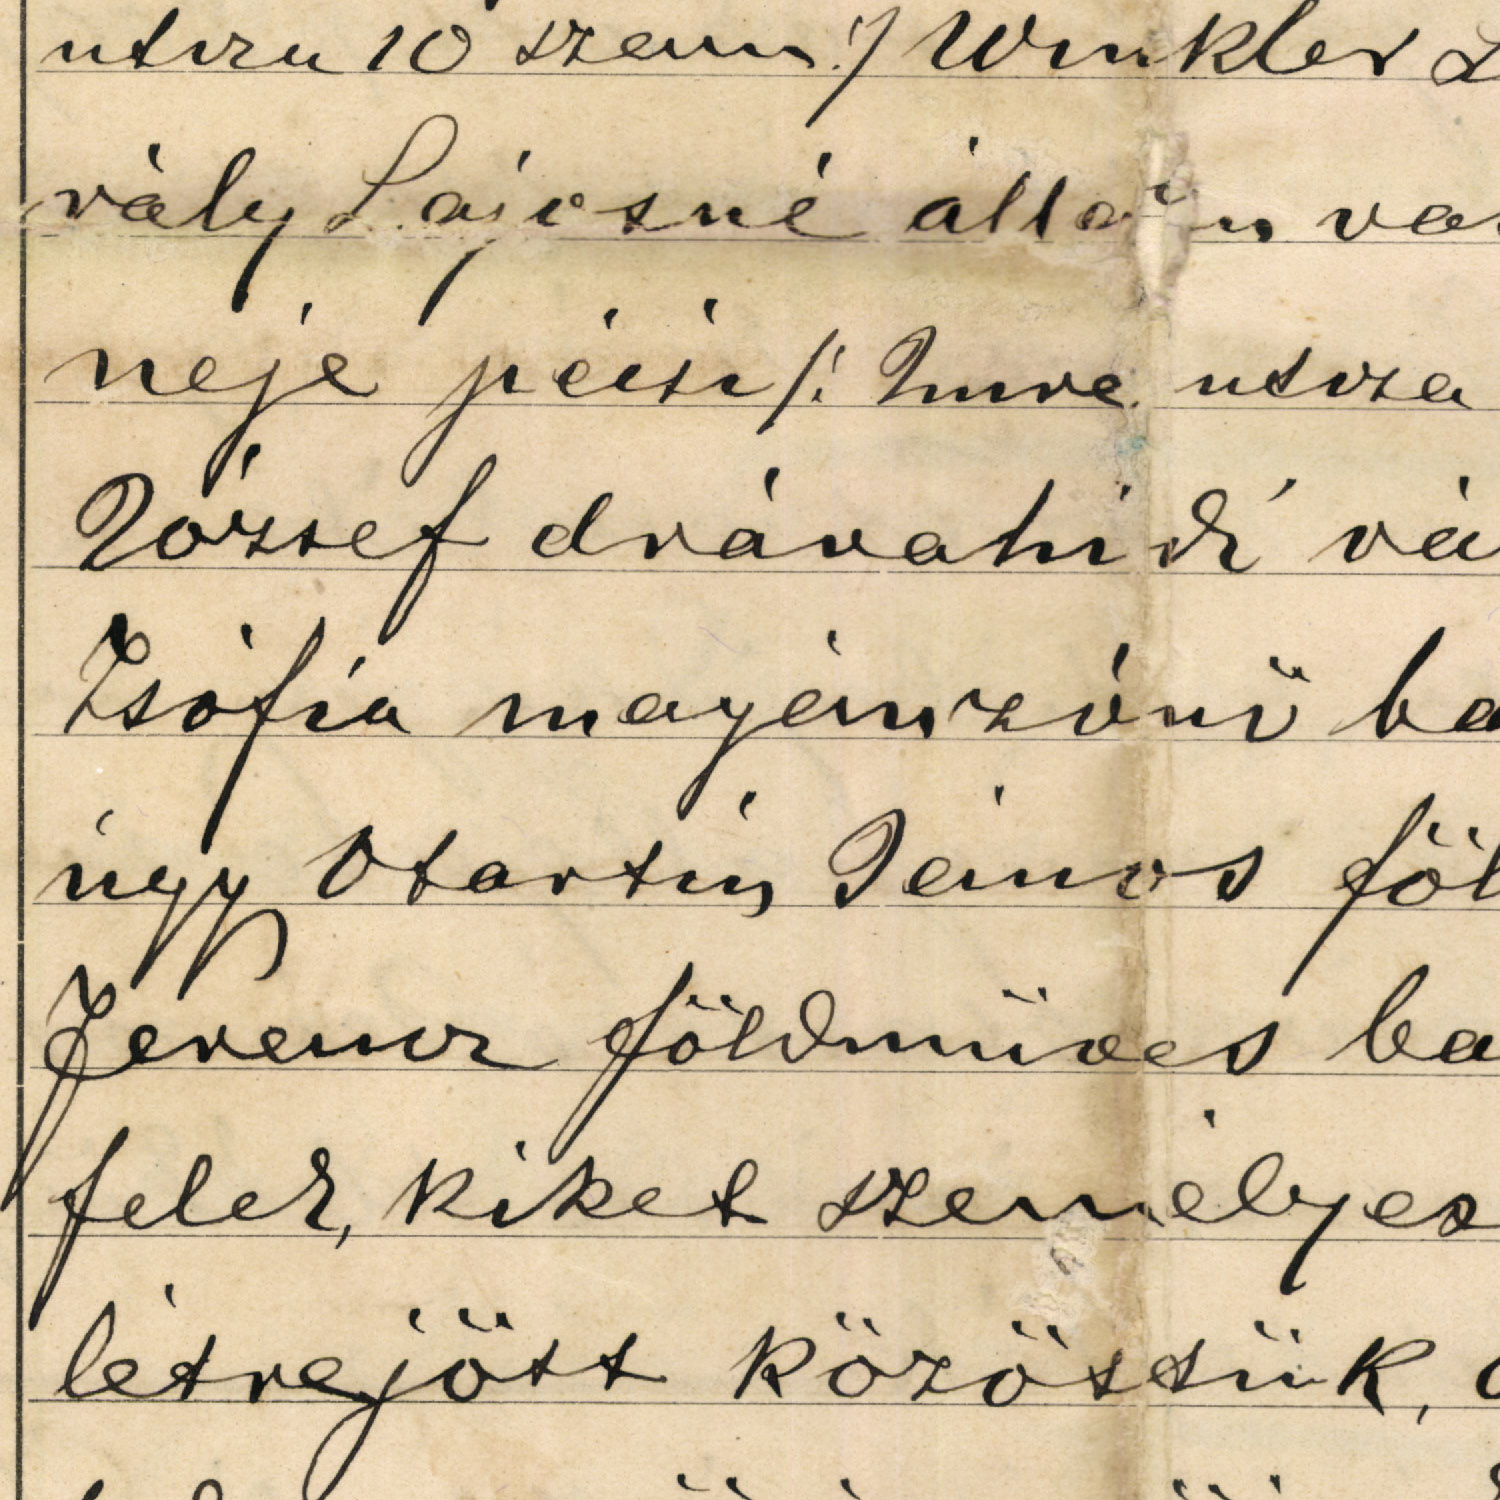 utcza 10 szám :/ Winkler L
vály Lajosné állam va
neje pécsi /: Imre utcza
József drávahidi vá
Zsófia magánzónő ba
úgy Martin János föl
Ferencz földmüves ba
felek, kiket személyes
létrejött közöttük,